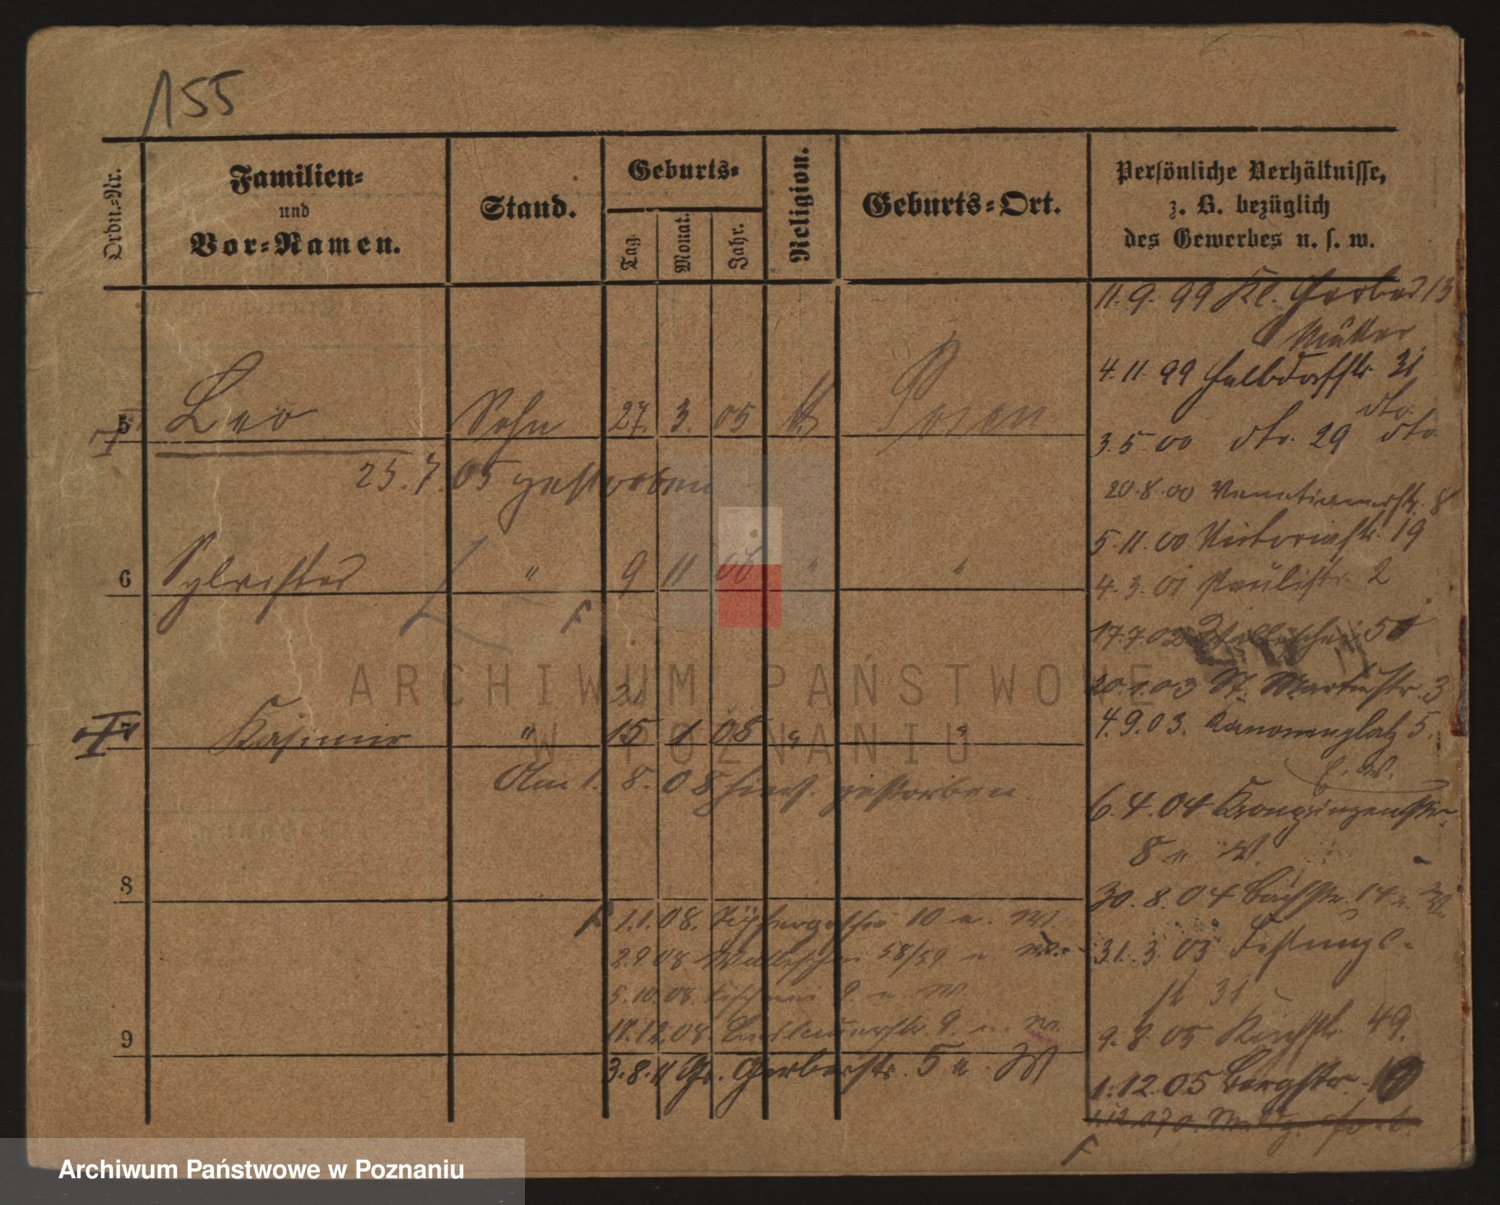 155
Ordn.-Nr.
Familien-
und
Vor-Namen.
Stand.
Geburts-
Tag.
Monat.
Jahr.
Religion.
Geburts-Ort.
Persönliche Verhältnisse,
z. B. bezüglich
des Gewerbes u. s. w.
11.9.99 Kl. Gerber 13
4.11.99 Halbdorfstr. 31
5 Leo Sohn 27. 3. 05 Posen
3.5.00 dto. 29 dto.
25.7.05 gestorben
20.8.00 Venetianerstr. 8
5.11.00 Victoriastr. 19
6 Sylvester " 9 11 " "
4.3.01 Paulistr. 2
17.7.02 Wallischei
20.1.03 St. Martinstr. 3
7 Kasimir " 15 1 " "
4.9.03. Kanonenplatz 5.
Am 1. 8. 08 hier gestorben.
6.4.04 Kronprinzenstr.
8 u. W
8
30.8.04 Bäckerstr. 14 u. W
1.1.08. 10 u. W
31.3.05 Festungs-
2.9.08 Wallischei 58/59 u. W.
str 31
5.10.08 9 u. W
9
11.12.08 9. u. W.
9.8.05 49.
3.8.11 Gr. Gerberstr. 5 u. W
1.12.05 Bergstr. 10
ARCHIWUM PAŃSTWOWE
W POZNANIU
Archiwum Państwowe w Poznaniu